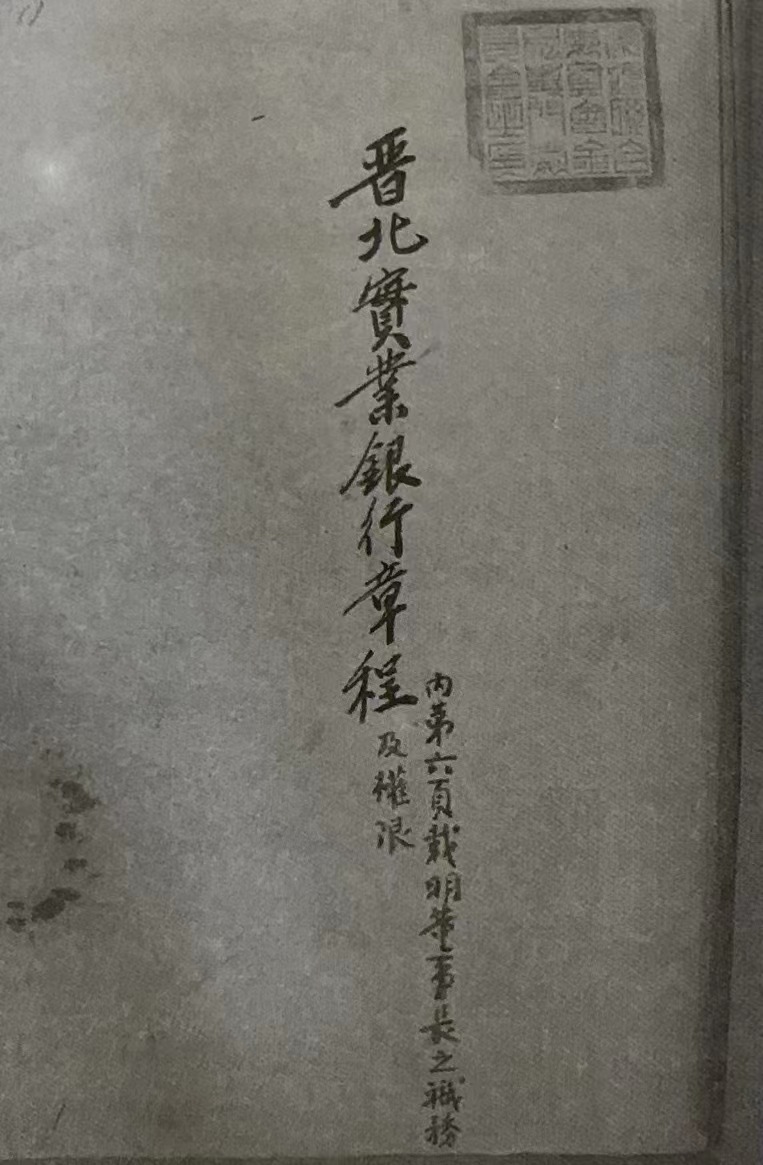 晋北實業銀行章程
内第六頁載明董事長之職務
及權限